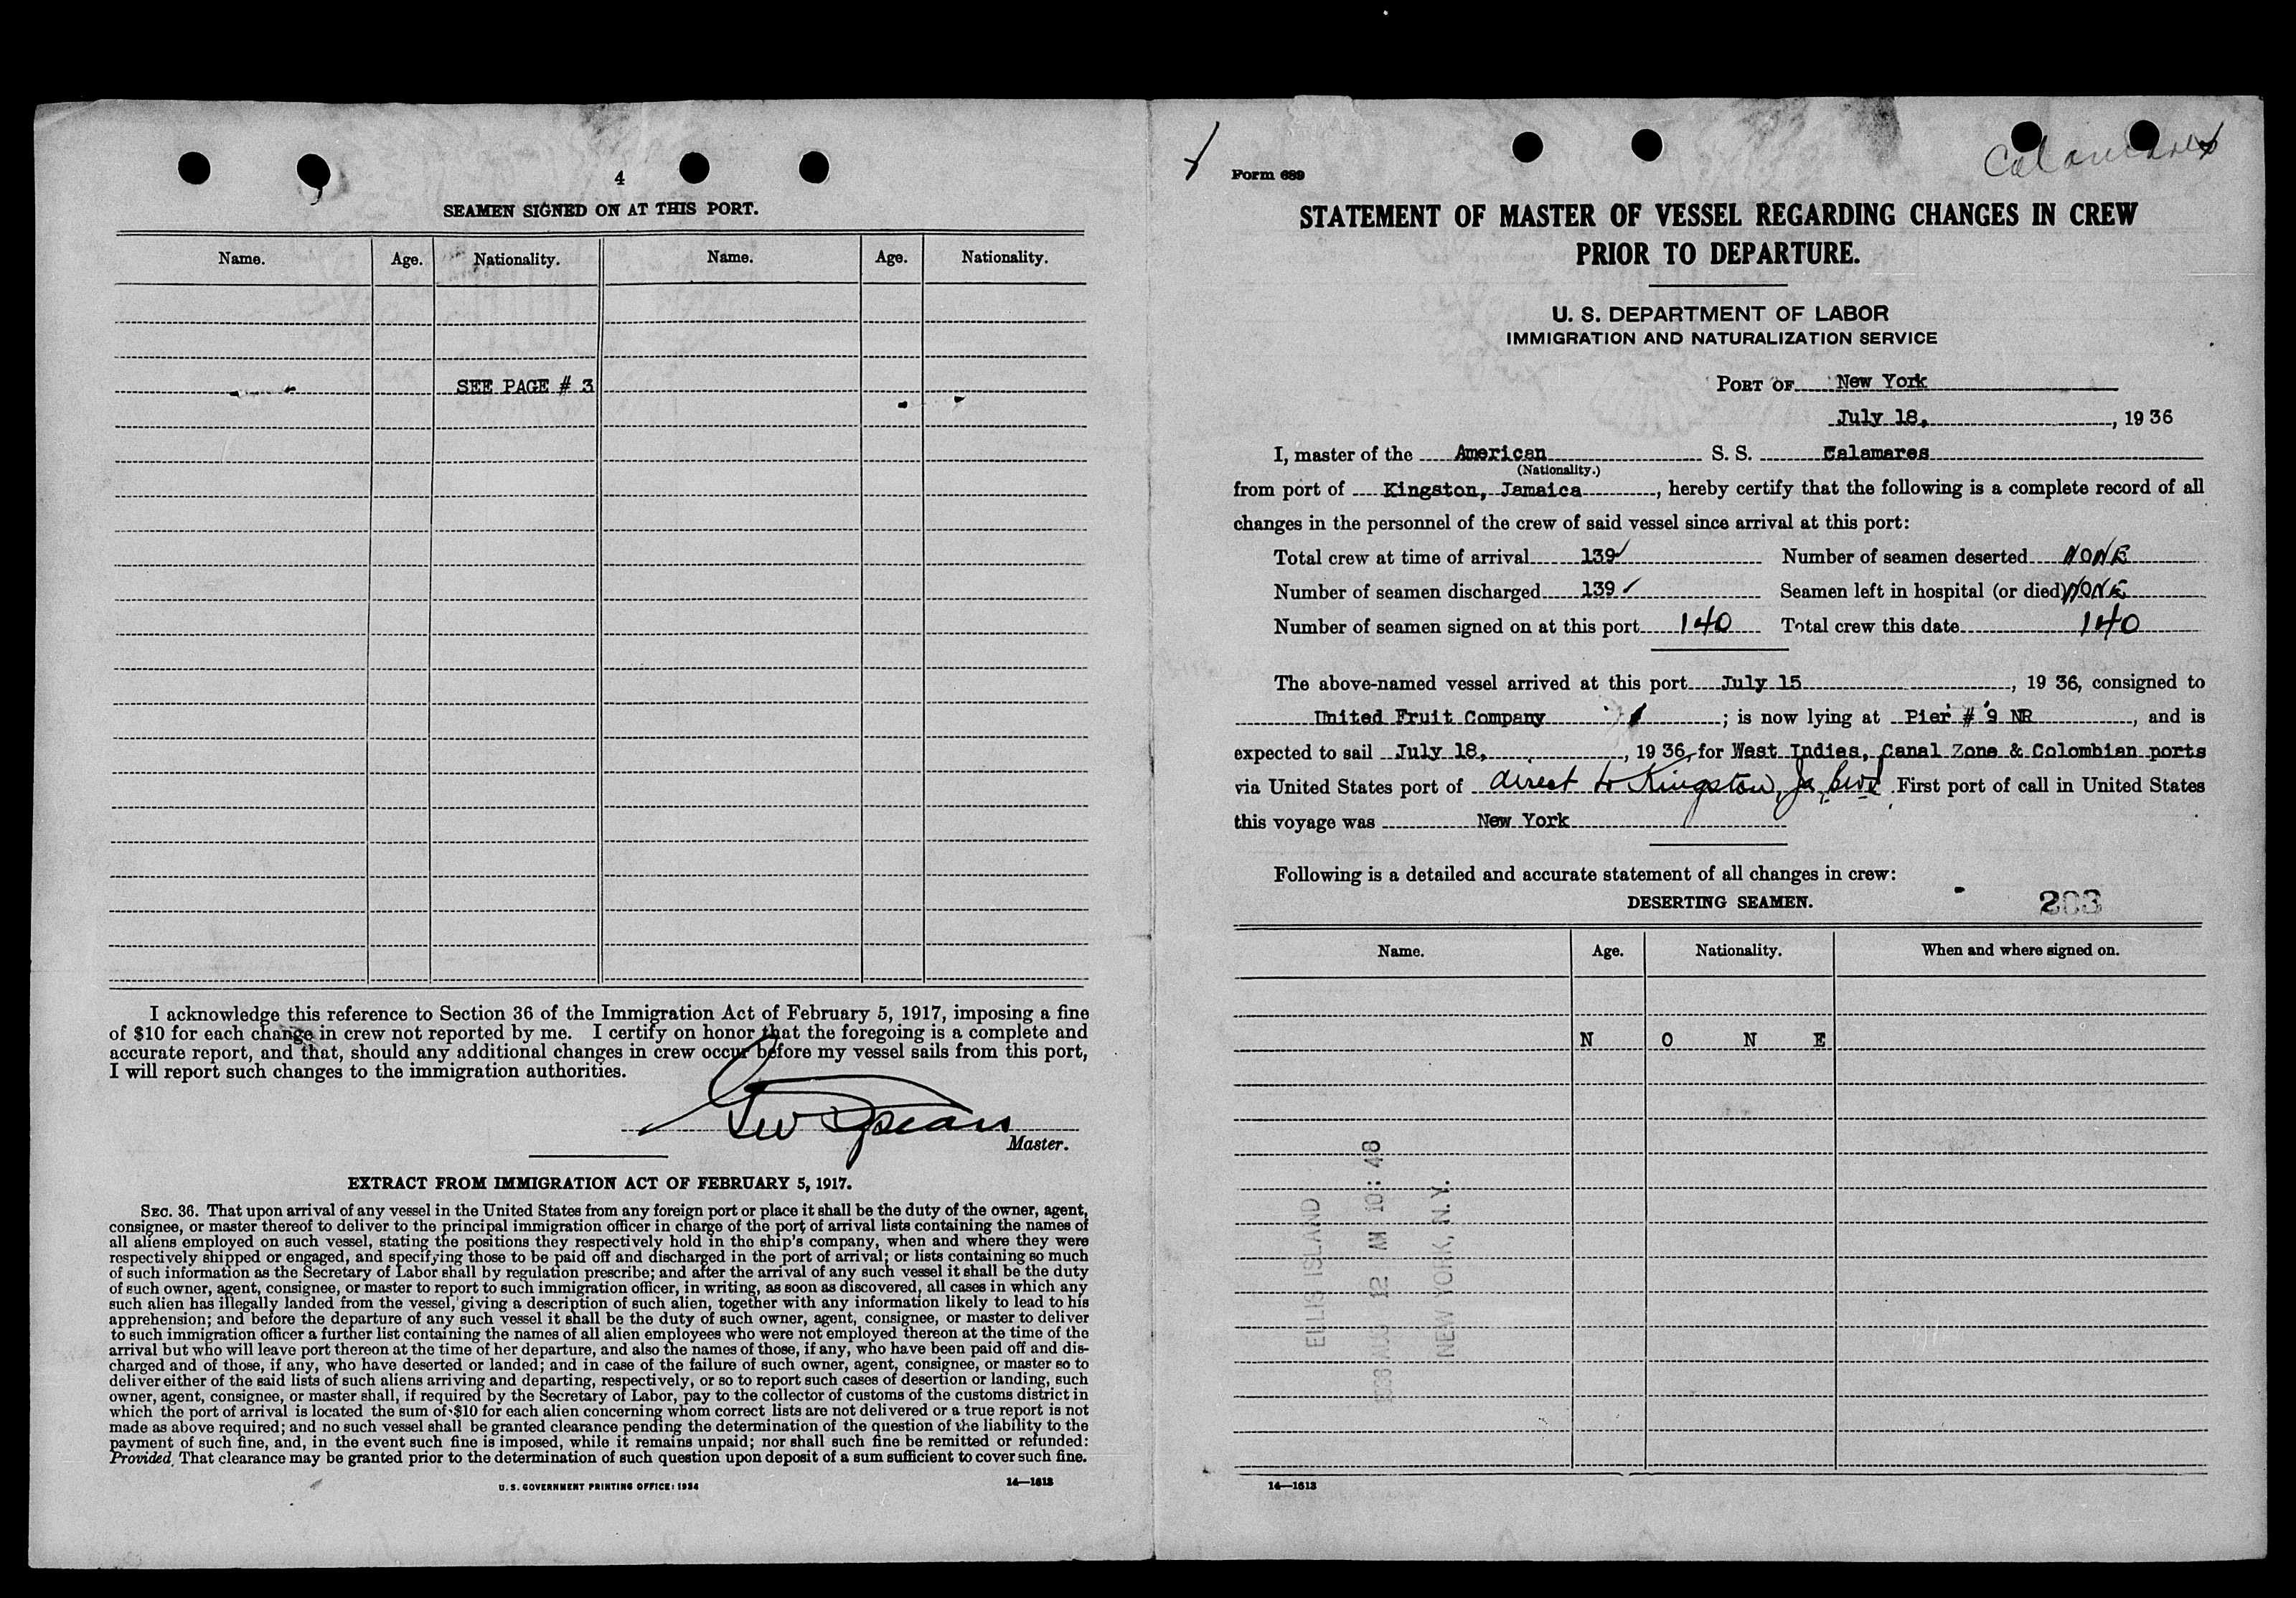 4
SEAMEN SIGNED ON AT THIS PORT.
Name. Age. Nationality. Name. Age. Nationality.
SEE PAGE # 3
I acknowledge this reference to Section 36 of the Immigration Act of February 5, 1917, imposing a fine
of $10 for each change in crew not reported by me. I certify on honor that the foregoing is a complete and
accurate report, and that, should any additional changes in crew occur before my vessel sails from this port,
I will report such changes to the immigration authorities.
Geo Spears
Master.
EXTRACT FROM IMMIGRATION ACT OF FEBRUARY 5, 1917.
SEC. 36. That upon arrival of any vessel in the United States from any foreign port or place it shall be the duty of the owner, agent,
consignee, or master thereof to deliver to the principal immigration officer in charge of the port of arrival lists containing the names of
all aliens employed on such vessel, stating the positions they respectively hold in the ship's company, when and where they were
respectively shipped or engaged, and specifying those to be paid off and discharged in the port of arrival; or lists containing so much
of such information as the Secretary of Labor shall by regulation prescribe; and after the arrival of any such vessel it shall be the duty
of such owner, agent, consignee, or master to report to such immigration officer, in writing, as soon as discovered, all cases in which any
such alien has illegally landed from the vessel, giving a description of such alien, together with any information likely to lead to his
apprehension; and before the departure of any such vessel it shall be the duty of such owner, agent, consignee, or master to deliver
to such immigration officer a further list containing the names of all alien employees who were not employed thereon at the time of the
arrival but who will leave port thereon at the time of her departure, and also the names of those, if any, who have been paid off and dis-
charged and of those, if any, who have deserted or landed; and in case of the failure of such owner, agent, consignee, or master so to
deliver either of the said lists of such aliens arriving and departing, respectively, or so to report such cases of desertion or landing, such
owner, agent, consignee, or master shall, if required by the Secretary of Labor, pay to the collector of customs of the customs district in
which the port of arrival is located the sum of $10 for each alien concerning whom correct lists are not delivered or a true report is not
made as above required; and no such vessel shall be granted clearance pending the determination of the question of the liability to the
payment of such fine, and, in the event such fine is imposed, while it remains unpaid; nor shall such fine be remitted or refunded:
Provided, That clearance may be granted prior to the determination of such question upon deposit of a sum sufficient to cover such fine.
U. S. GOVERNMENT PRINTING OFFICE: 1934
14—1613
Calamares
Form 689
STATEMENT OF MASTER OF VESSEL REGARDING CHANGES IN CREW
PRIOR TO DEPARTURE.
U. S. DEPARTMENT OF LABOR
IMMIGRATION AND NATURALIZATION SERVICE
PORT OF New York
July 18, , 19 36
I, master of the American S. S. Calamares
(Nationality.)
from port of Kingston, Jamaica , hereby certify that the following is a complete record of all
changes in the personnel of the crew of said vessel since arrival at this port:
Total crew at time of arrival 139 Number of seamen deserted NONE
Number of seamen discharged 139 Seamen left in hospital (or died) NONE
Number of seamen signed on at this port 140 Total crew this date 140
The above-named vessel arrived at this port July 15 , 19 36, consigned to
United Fruit Company ; is now lying at Pier # 9 NR , and is
expected to sail July 18, , 19 36, for West Indies, Canal Zone & Colombian ports
via United States port of direct to Kingston, Ja, . First port of call in United States
this voyage was New York
Following is a detailed and accurate statement of all changes in crew:
DESERTING SEAMEN.
203
Name. Age. Nationality. When and where signed on.
N O N E
ELLIS ISLAND
1936 AUG 12 AM 10:48
NEW YORK, N. Y.
14—1613